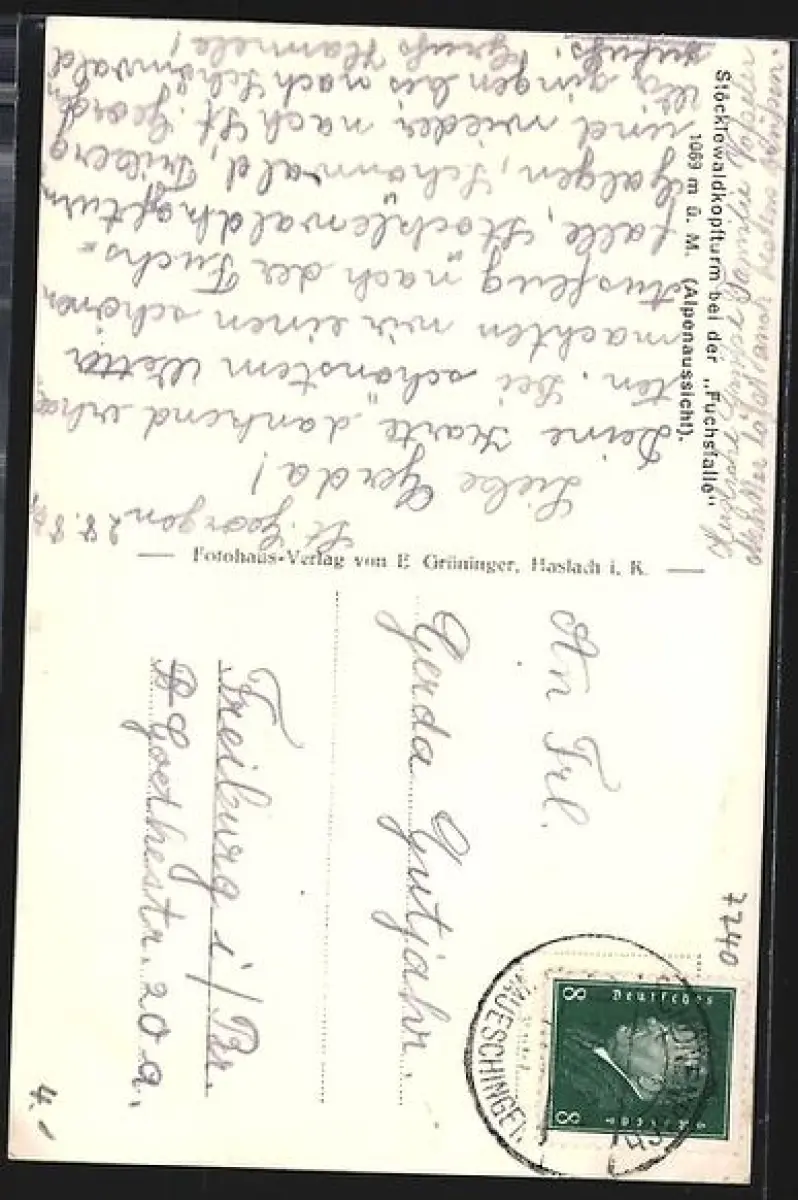 Stöcklewaldkopfturm bei der „Fuchsfalle"
1069 m ü. M. (Alpenaussicht).
St. Georgen 28. 8.
Liebe Gerda!
Deine Karte dankend erhal-
ten. Bei schönstem Wetter
machten wir einen schönen
Ausflug nach der Fuchs-
falle, Stöcklewaldkopfturm
Galgen, Schonwald, Triberg
und wieder nach St. Georgen
bis nach Schönwald
zufuß. Gruß Hannele!
Familie
läßt auch bestens grüßen.
Fotohaus-Verlag von E Grüninger, Haslach i. K.
An Frl.
Gerda Gutjahr.
Freiburg i/Br.
Goethestr. 20 a.
7740
4.-
8 Deutsches 8